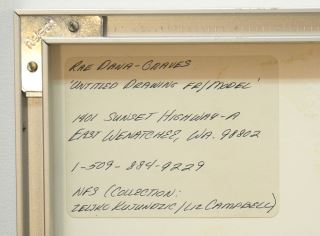 RAE DANA-GRAVES
'UNTITLED DRAWING FR/MODEL'
1401 SUNSET HIGHWAY-A
EAST WENATCHEE, WA. 98802
1-509-884-9229
NFS (COLLECTION:
ZELJKO KUJUNDZIC/LIZ CAMPBELL)